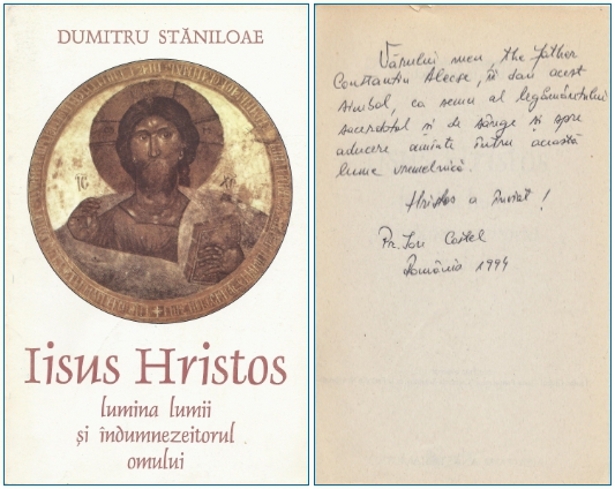 DUMITRU STĂNILOAE
IC XC
Iisus Hristos
lumina lumii
și îndumnezeitorul
omului
Vărului meu, the father
Constantin Alecse, îi dau acest
simbol, ca semn al legământului
sacerdotal și de sânge și spre
aducere aminte întru această
lume vremelnică.
Hristos a înviat!
Pr. Ion Costel
România 1994